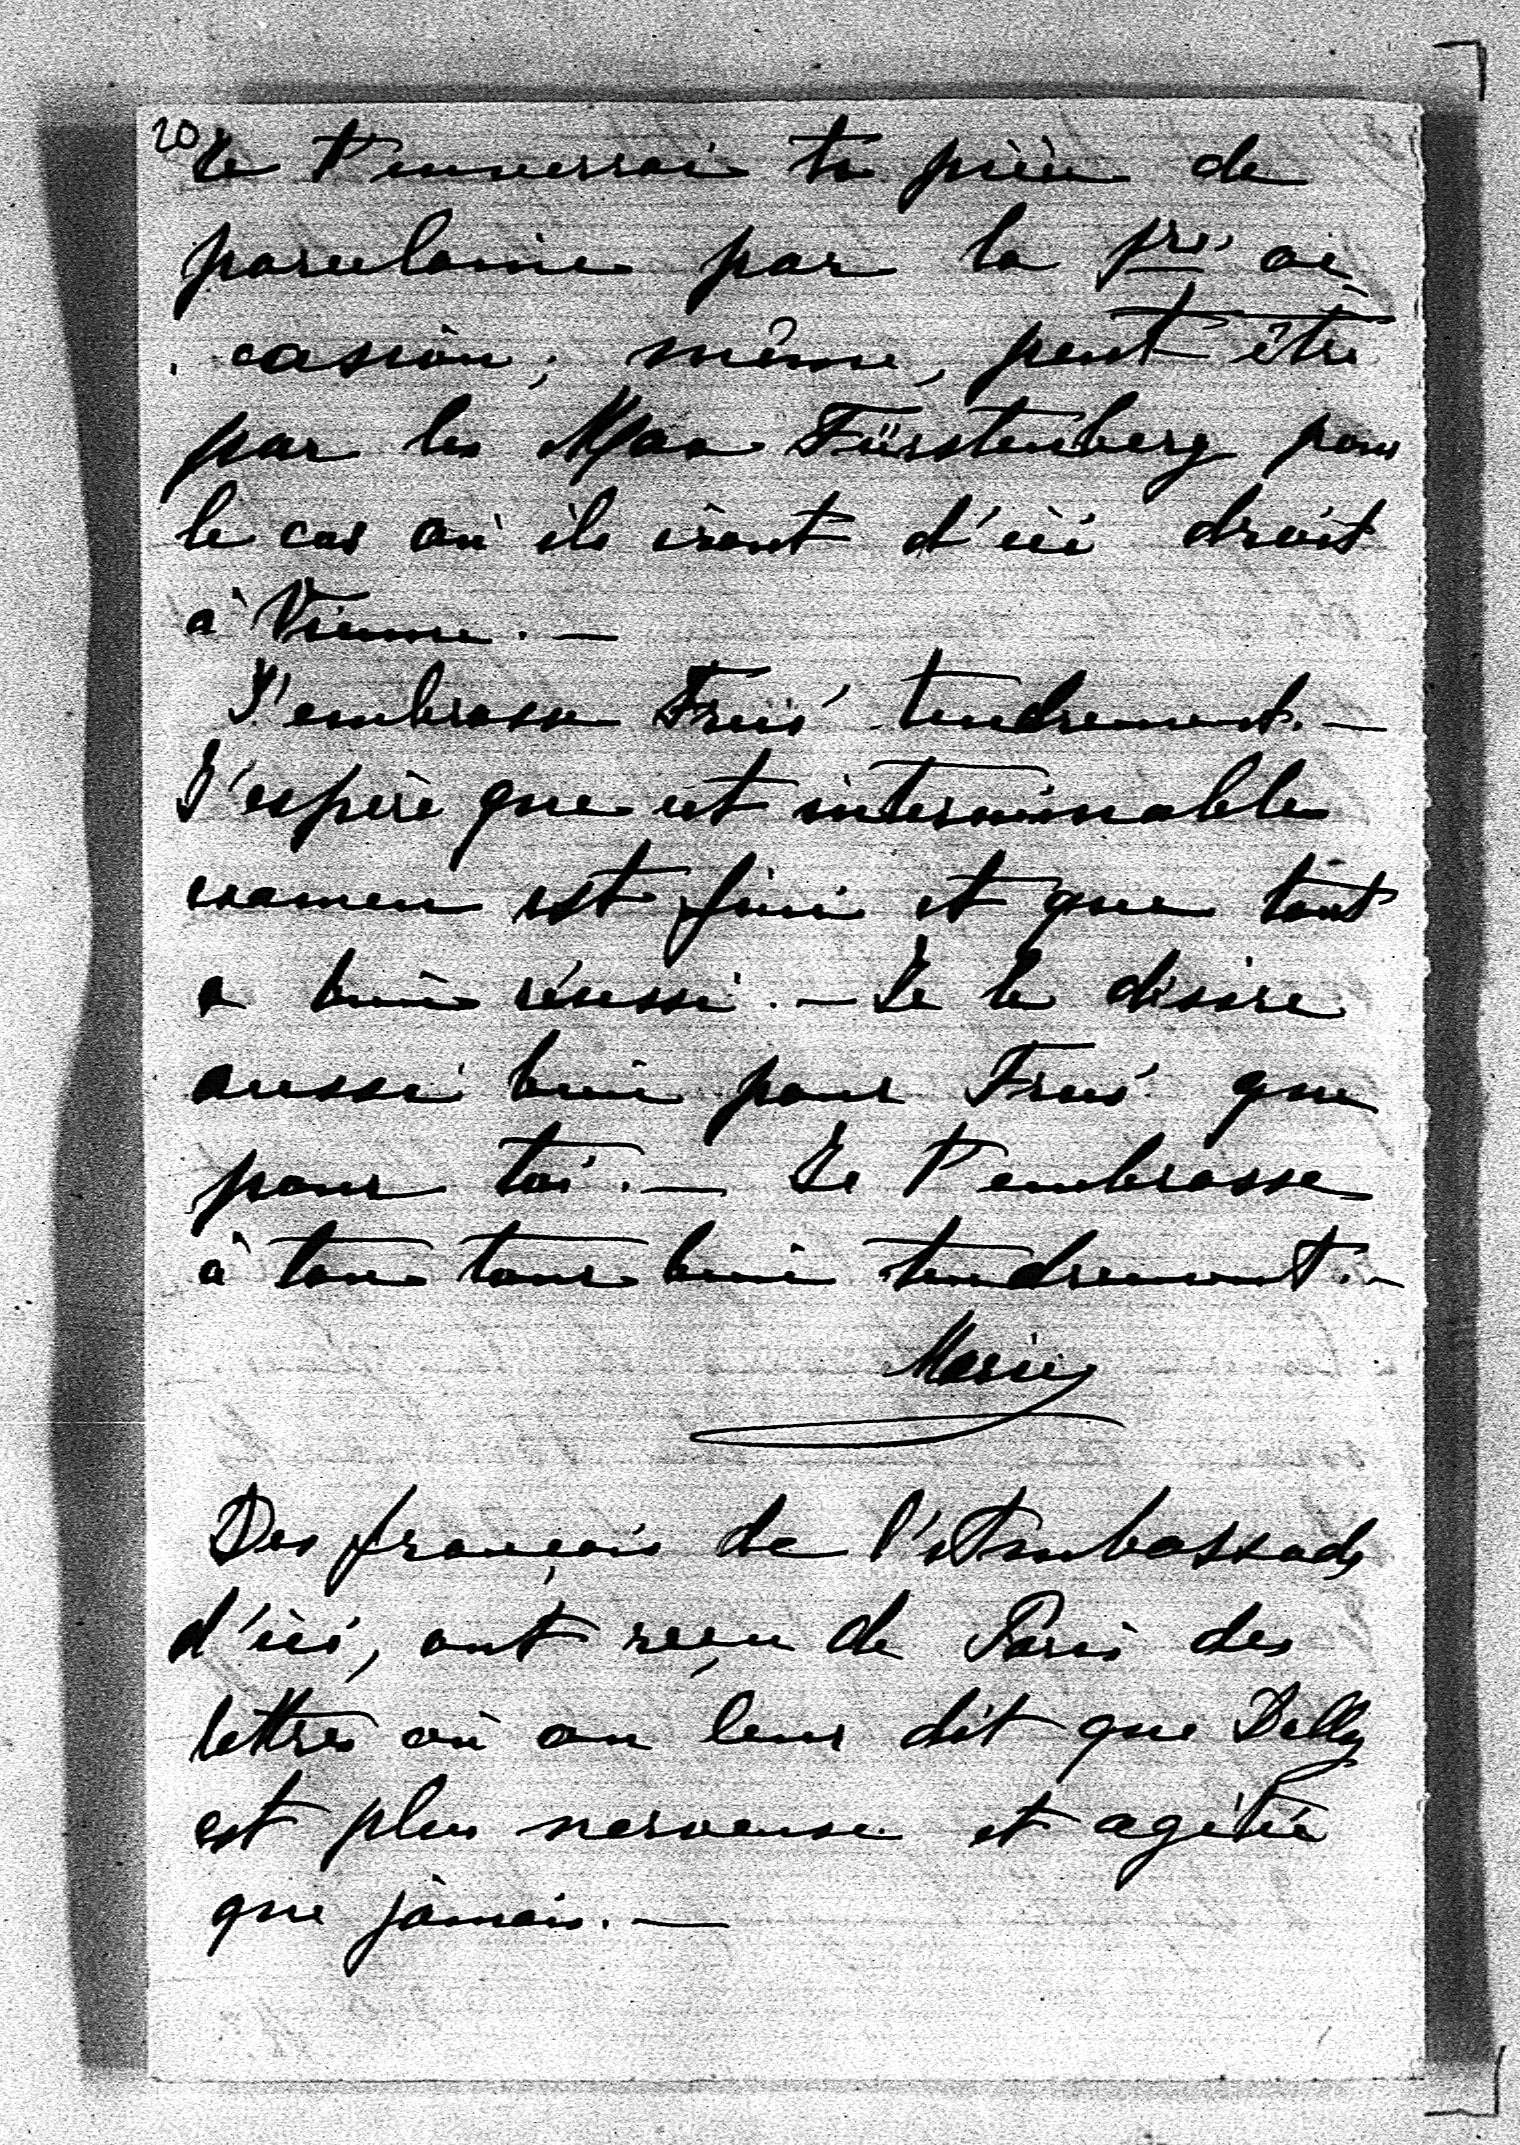 20
Je t'enverrai ta pièce de
porcelaine par la pre oc
casion; même, peut être
par les Max Fürstenberg pour
le cas où ils iront d'ici droit
à Vienne. —
J'embrasse tendrement. —
J'espère que cet interminable
examen est fini et que tout
a bien réussi. — Je le désire
aussi bien pour que
pour toi. — Je t'embrasse
à ton tour bien tendrement. —
Marie
Des français de l'Ambassade
d'ici, ont reçu de Paris des
lettres où on leur dit que Dolly
est plus nerveuse et agitée
que jamais. —